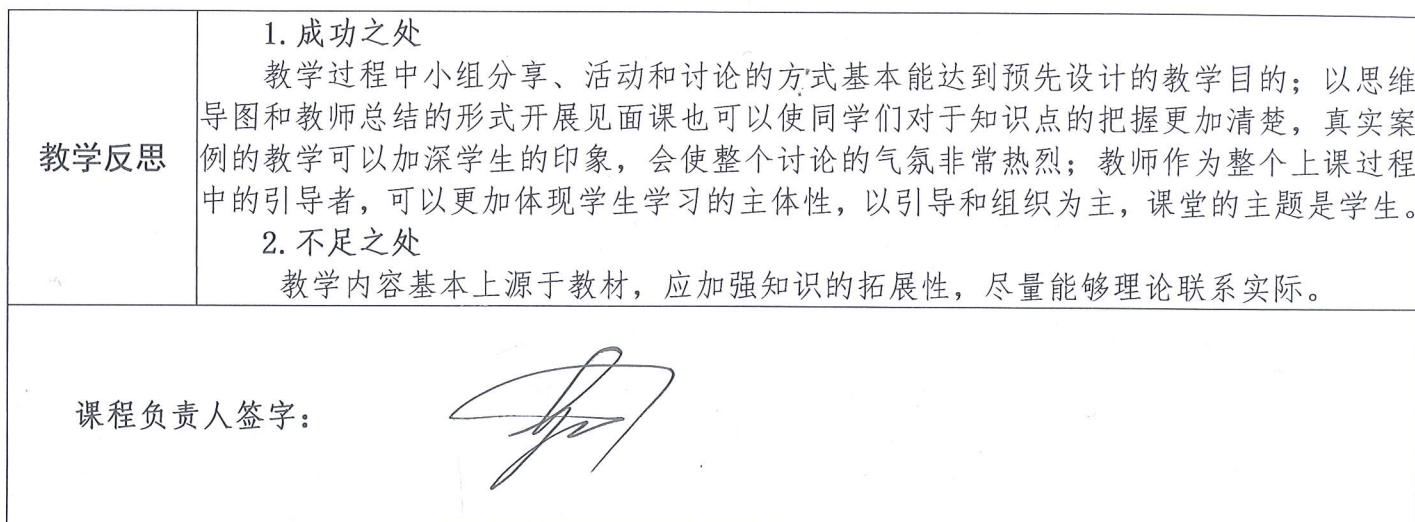 1.成功之处
教学过程中小组分享、活动和讨论的方式基本能达到预先设计的教学目的；以思维
导图和教师总结的形式开展见面课也可以使同学们对于知识点的把握更加清楚，真实案
教学反思
例的教学可以加深学生的印象，会使整个讨论的气氛非常热烈；教师作为整个上课过程
中的引导者，可以更加体现学生学习的主体性，以引导和组织为主，课堂的主题是学生。
2.不足之处
教学内容基本上源于教材，应加强知识的拓展性，尽量能够理论联系实际。
课程负责人签字：